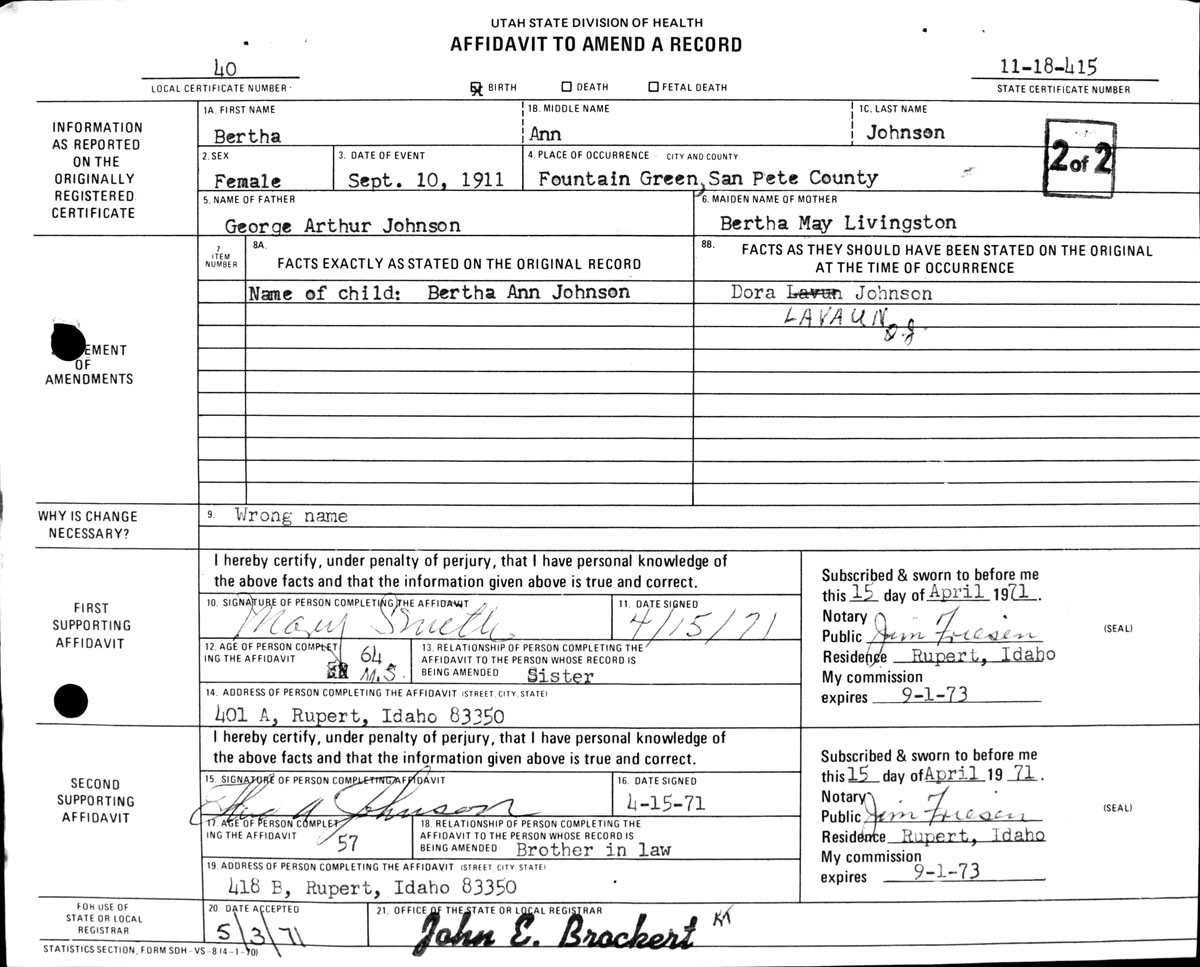 UTAH STATE DIVISION OF HEALTH
AFFIDAVIT TO AMEND A RECORD
40
LOCAL CERTIFICATE NUMBER
BIRTH DEATH FETAL DEATH
11-18-415
STATE CERTIFICATE NUMBER
INFORMATION
AS REPORTED
ON THE
ORIGINALLY
REGISTERED
CERTIFICATE
1A. FIRST NAME 1B. MIDDLE NAME 1C. LAST NAME
Bertha Ann Johnson
2 of 2
2. SEX 3. DATE OF EVENT 4. PLACE OF OCCURRENCE – CITY AND COUNTY
Female Sept. 10, 1911 Fountain Green, San Pete County
5. NAME OF FATHER 6. MAIDEN NAME OF MOTHER
George Arthur Johnson Bertha May Livingston
EMENT
OF
AMENDMENTS
7
ITEM
NUMBER
8A.
FACTS EXACTLY AS STATED ON THE ORIGINAL RECORD
8B. FACTS AS THEY SHOULD HAVE BEEN STATED ON THE ORIGINAL
AT THE TIME OF OCCURRENCE
Name of child: Bertha Ann Johnson Dora Lavun Johnson
LAVAUN
D.J.
WHY IS CHANGE
NECESSARY?
9. Wrong name
FIRST
SUPPORTING
AFFIDAVIT
I hereby certify, under penalty of perjury, that I have personal knowledge of
the above facts and that the information given above is true and correct.
10. SIGNATURE OF PERSON COMPLETING THE AFFIDAVIT 11. DATE SIGNED
Mary Smith 4/15/71
12. AGE OF PERSON COMPLET
ING THE AFFIDAVIT 64
M.S.
13. RELATIONSHIP OF PERSON COMPLETING THE
AFFIDAVIT TO THE PERSON WHOSE RECORD IS
BEING AMENDED Sister
14. ADDRESS OF PERSON COMPLETING THE AFFIDAVIT (STREET, CITY, STATE)
401 A, Rupert, Idaho 83350
Subscribed & sworn to before me
this 15 day of April 1971.
Notary
Public Jim Friesen
(SEAL)
Residence Rupert, Idaho
My commission
expires 9-1-73
SECOND
SUPPORTING
AFFIDAVIT
I hereby certify, under penalty of perjury, that I have personal knowledge of
the above facts and that the information given above is true and correct.
15. SIGNATURE OF PERSON COMPLETING AFFIDAVIT 16. DATE SIGNED
A Johnson 4-15-71
17. AGE OF PERSON COMPLET
ING THE AFFIDAVIT 57
18. RELATIONSHIP OF PERSON COMPLETING THE
AFFIDAVIT TO THE PERSON WHOSE RECORD IS
BEING AMENDED Brother in law
19. ADDRESS OF PERSON COMPLETING THE AFFIDAVIT (STREET, CITY, STATE)
418 B, Rupert, Idaho 83350
Subscribed & sworn to before me
this 15 day of April 1971.
Notary
Public Jim Friesen
(SEAL)
Residence Rupert, Idaho
My commission
expires 9-1-73
FOR USE OF
STATE OR LOCAL
REGISTRAR
20. DATE ACCEPTED 21. OFFICE OF THE STATE OR LOCAL REGISTRAR
5/3/71 John E. Brockert KT
STATISTICS SECTION, FORM SDH-VS-8 (4-1-70)